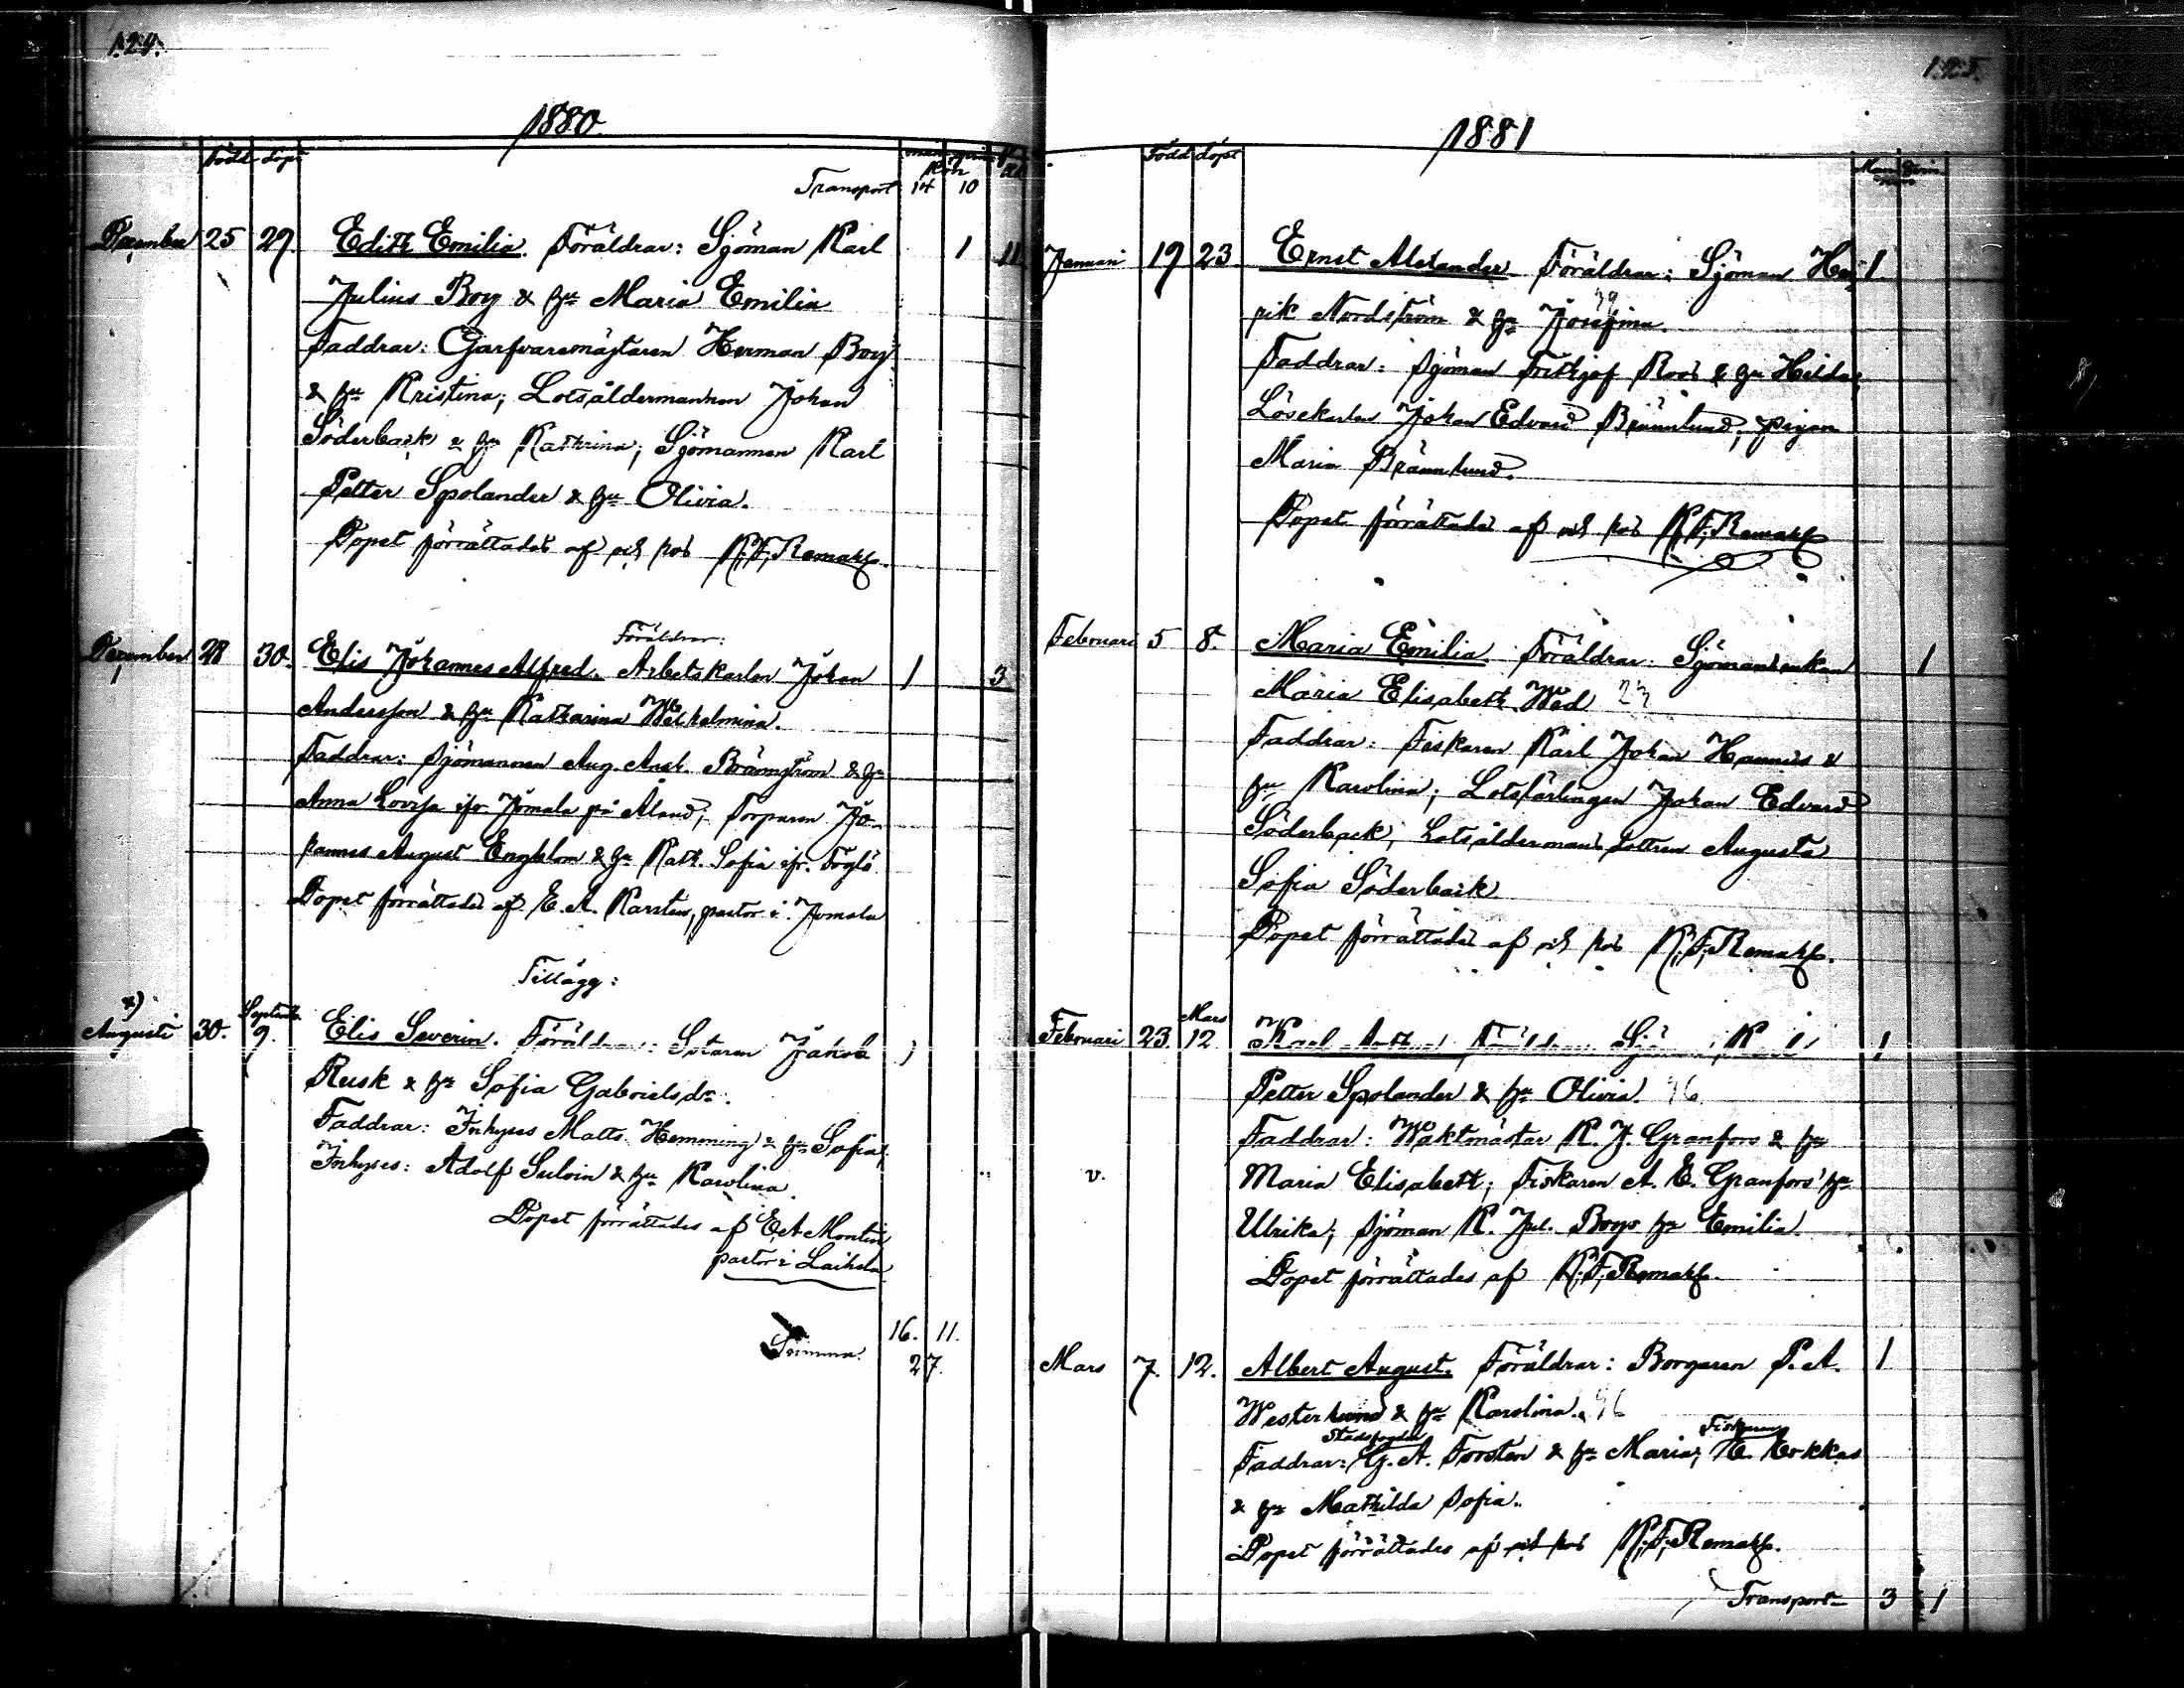 124.
1880
Född döpt
man qvin
kön
Transport 14 10
December 25 29. Edith Emilia. Föräldrar: Sjöman Karl 1 11
Julius Boy & hu Maria Emilia
Faddrar: Garfvaremästaren Herman Boy
& hu Kristina; Lotsåldermannen Johan
Söderback & hu Kathrina; Sjömannen Karl
Petter Spolander & hu Olivia.
Dopet förrättades af
Föräldrar:
December 28 30. Elis Johannes Alfred. Arbetskarlen Johan 1 3
Andersson & hu Katharina Wilhelmina.
Faddrar: Sjömannen Aug. Anst. Brännström & hu
Anna Lovisa ifr. Jomala på Åland; Torparen Jo-
hannes August Engblom & hu Kath. Sofia ifr. Föglö
Dopet förrättades af E. A. Karsten, pastor i Jomala
Tillägg:
x) Septemb.
Augusti 30. 9. Elis Severin. Föräldrar: Sotaren Jakob 1
Rusk & hu Sofia Gabrielsdr.
Faddrar: Inhyses Matts Hemming & hu Sofia;
Inhyses: Adolf Sulvin & hu Karolina.
Dopet förrättades af E A Montin
pastor i Laihela
16. 11.
Summa. 27.
125.
1881
Född döpt
Man Qvin
Januari 19 23 Ernst Alexander Föräldrar: Sjöman Hen- 1
rik Nordström & hu Josefina. 39
Faddrar: Sjöman Frithjof Roos & hu Hilda;
Lösekarlen Johan Edvard Brännlund; pigan
Maria Brännlund.
Dopet förrättades af
Februari 5 8. Maria Emilia Föräldrar: Sjömansenkan 1
Maria Elisabeth Wed 23
Faddrar: Fiskaren Karl Johan Hannus &
hu Karolina; Lotslärlingen Johan Edvard
Söderback; Lotsåldermans dottren Augusta
Sofia Söderback
Dopet förrättades af
Mars
Februari 23. 12 Karl 1
Petter Spolander & hu Olivia. 46
Faddrar: Waktmästar K. J. Granfors & hu
v. Maria Elisabeth; Fiskaren A. E. Granfors' hu
Ulrika; Sjöman K. Jul. Boys hu Emilia.
Dopet förrättades af
Mars 7. 12. Albert August. Föräldrar: Borgaren P. A. 1
Westerlund & hu Karolina. 46
Stadsfogden Fiskaren
Faddrar: G. A. Forstén & hu Maria; E. Erkkas
& hu Mathilda Sofia.
Dopet förrättades af
Transport 3 1